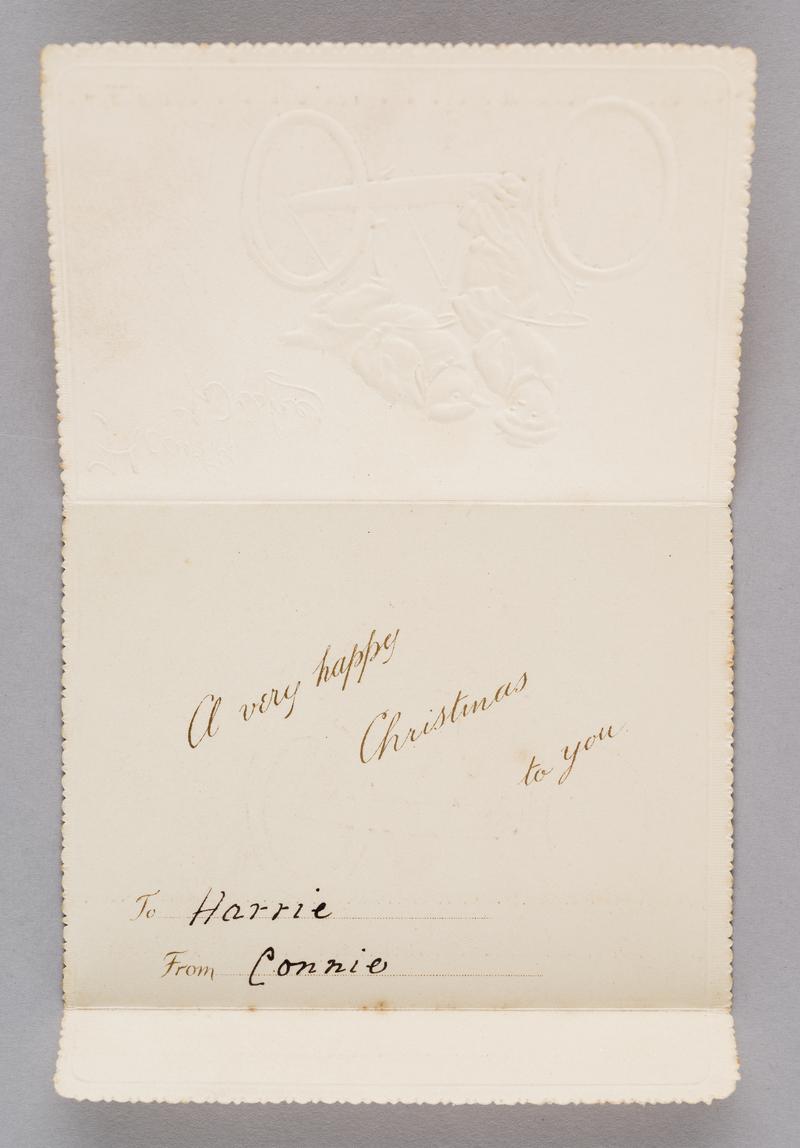 A very happy
Christmas
to you
To Harrie
From Connie